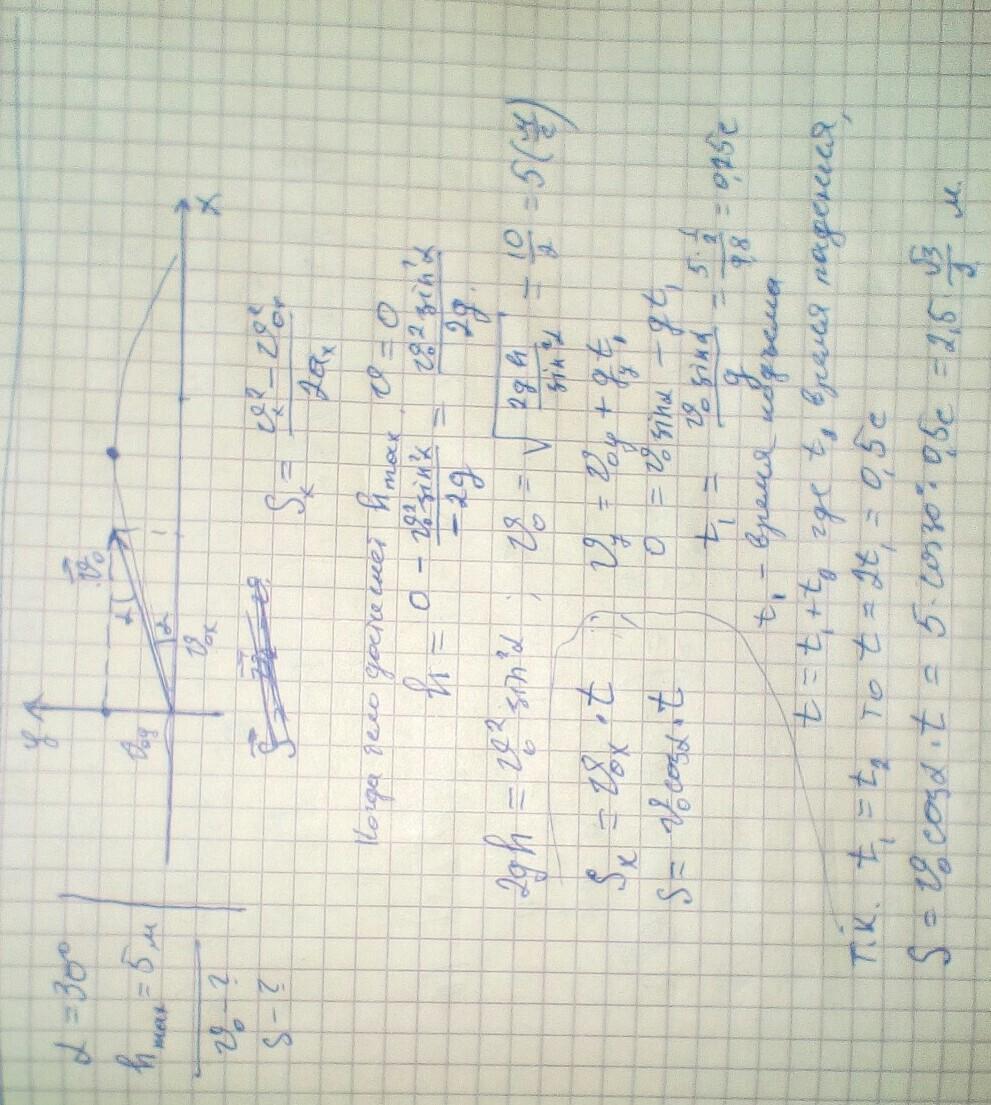 α = 30°
h max = 5 м
v₀ - ?
S - ?
y
v₀y
v⃗₀
α
α
v₀x
x
Sₓ = (vₓ² - v₀ₓ²) / 2aₓ
Когда тело достигнет h max v = 0
h = (0 - v₀² sin²α) / -2g = v₀² sin²α / 2g.
2gh = v₀² sin²α ; v₀ = √(2gh / sin²α) = 10/2 = 5 (м/с)
Sₓ = v₀ₓ · t ; v_y = v₀y + g_y t₁
S = v₀ cosα · t 0 = v₀ sinα - gt₁
t₁ = v₀ sinα / g = (5 · 1/2) / 9,8 = 0,25с
t₁ - время подъема
t = t₁ + t₂ где t₂ время падения,
т.к. t₁ = t₂ то t = 2t₁ = 0,5 с
S = v₀ cosα · t = 5 · cos30° · 0,5с = 2,5 · √3/2 м.